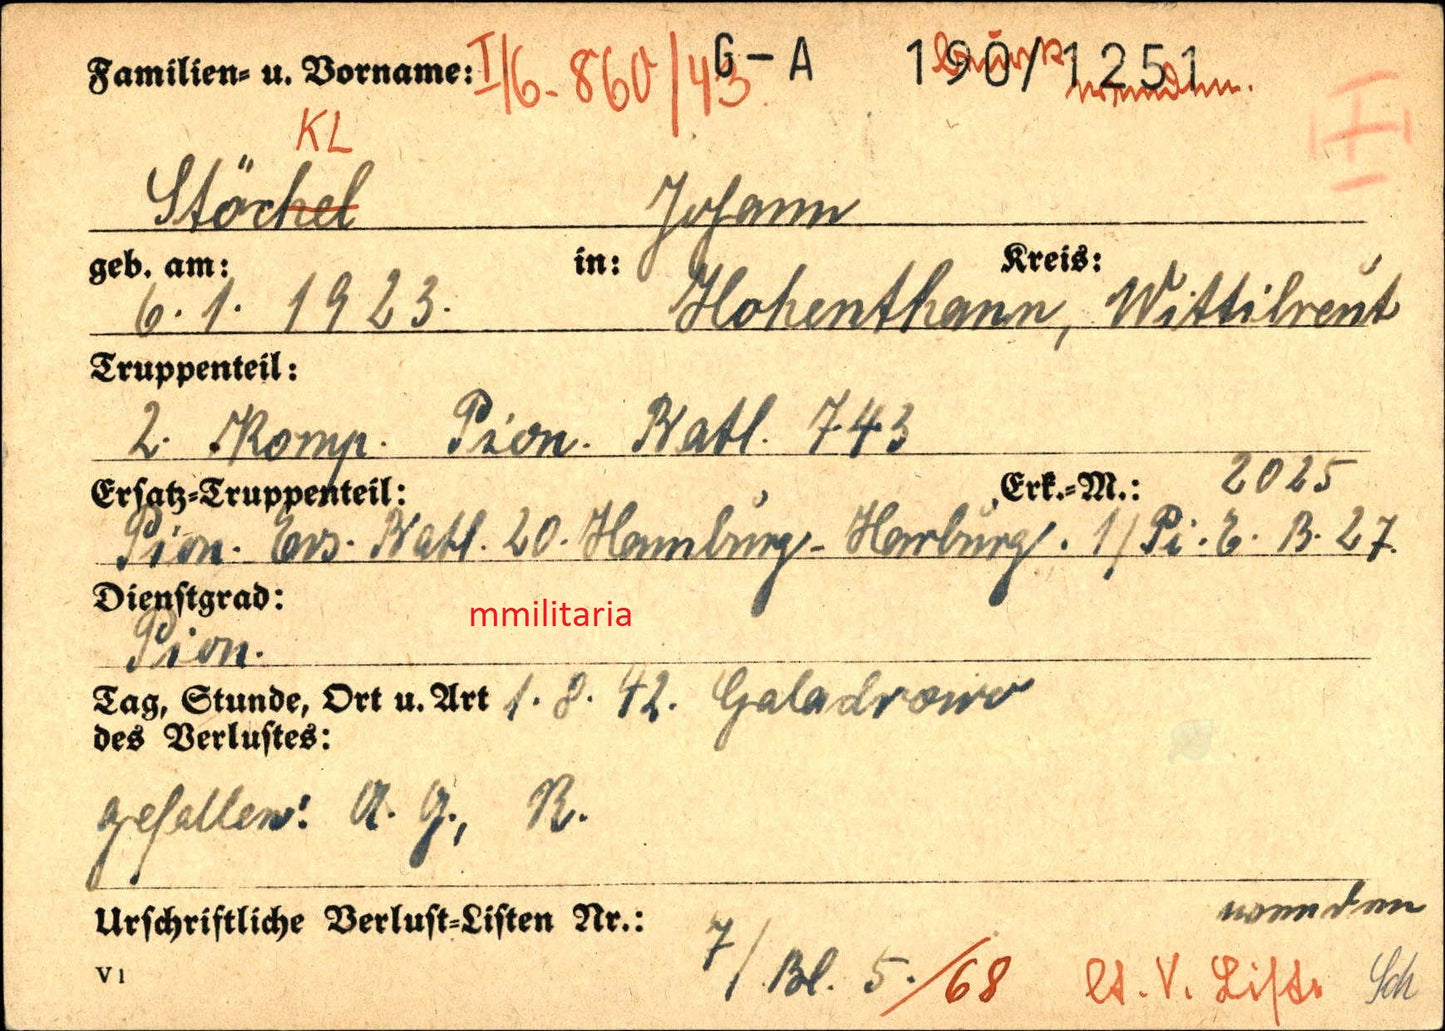 Familien- u. Vorname: I/6-860/43 G-A 190/1251
zurück
wenden.
KL
Stöckel Johann
geb. am: in: Kreis:
6. 1. 1923. Hohenthann,
Truppenteil:
2. Komp. Pion. Batl. 743
Ersatz-Truppenteil: Erk.-M.: 2025
Pion. Ers. Batl. 20. Hamburg-Harburg. 1/Pi. E. B. 27.
Dienstgrad:
mmilitaria
Pion.
Tag, Stunde, Ort u. Art 1. 8. 42. Galadrowo
des Verlustes:
gefallen: A. G., R.
Urschriftliche Verlust-Listen Nr.:
wenden
7/Bl. 5./68 lt. V. Liste Sch
V 1